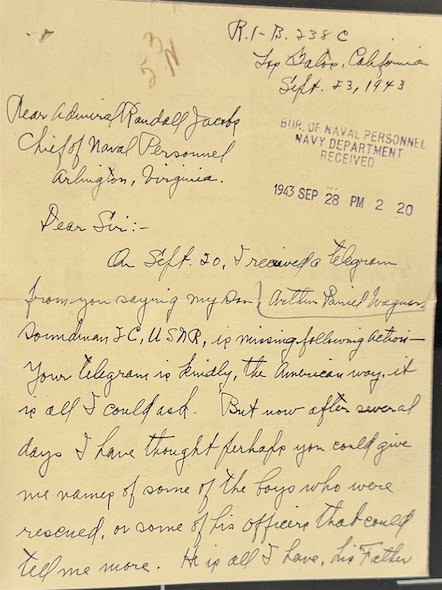 R.1-B. 238 C
Los Gatos, California
Sept. 23, 1943
53
N
Dear Admiral Randall Jacobs
Chief of Naval Personnel
Arlington, Virginia.
BUR. OF NAVAL PERSONNEL
NAVY DEPARTMENT
RECEIVED
1943 SEP 28 PM 2 20
Dear Sir:-
On Sept. 20, I received a telegram
from you saying my son, Arthur Daniel Wagner,
soundman 2C, USNR, is missing following action—
Your telegram is kindly, the American way, it
is all I could ask. But now after several
days I have thought perhaps you could give
me names of some of the boys who were
rescued, or some of his officers that could
tell me more. He is all I have, his Father